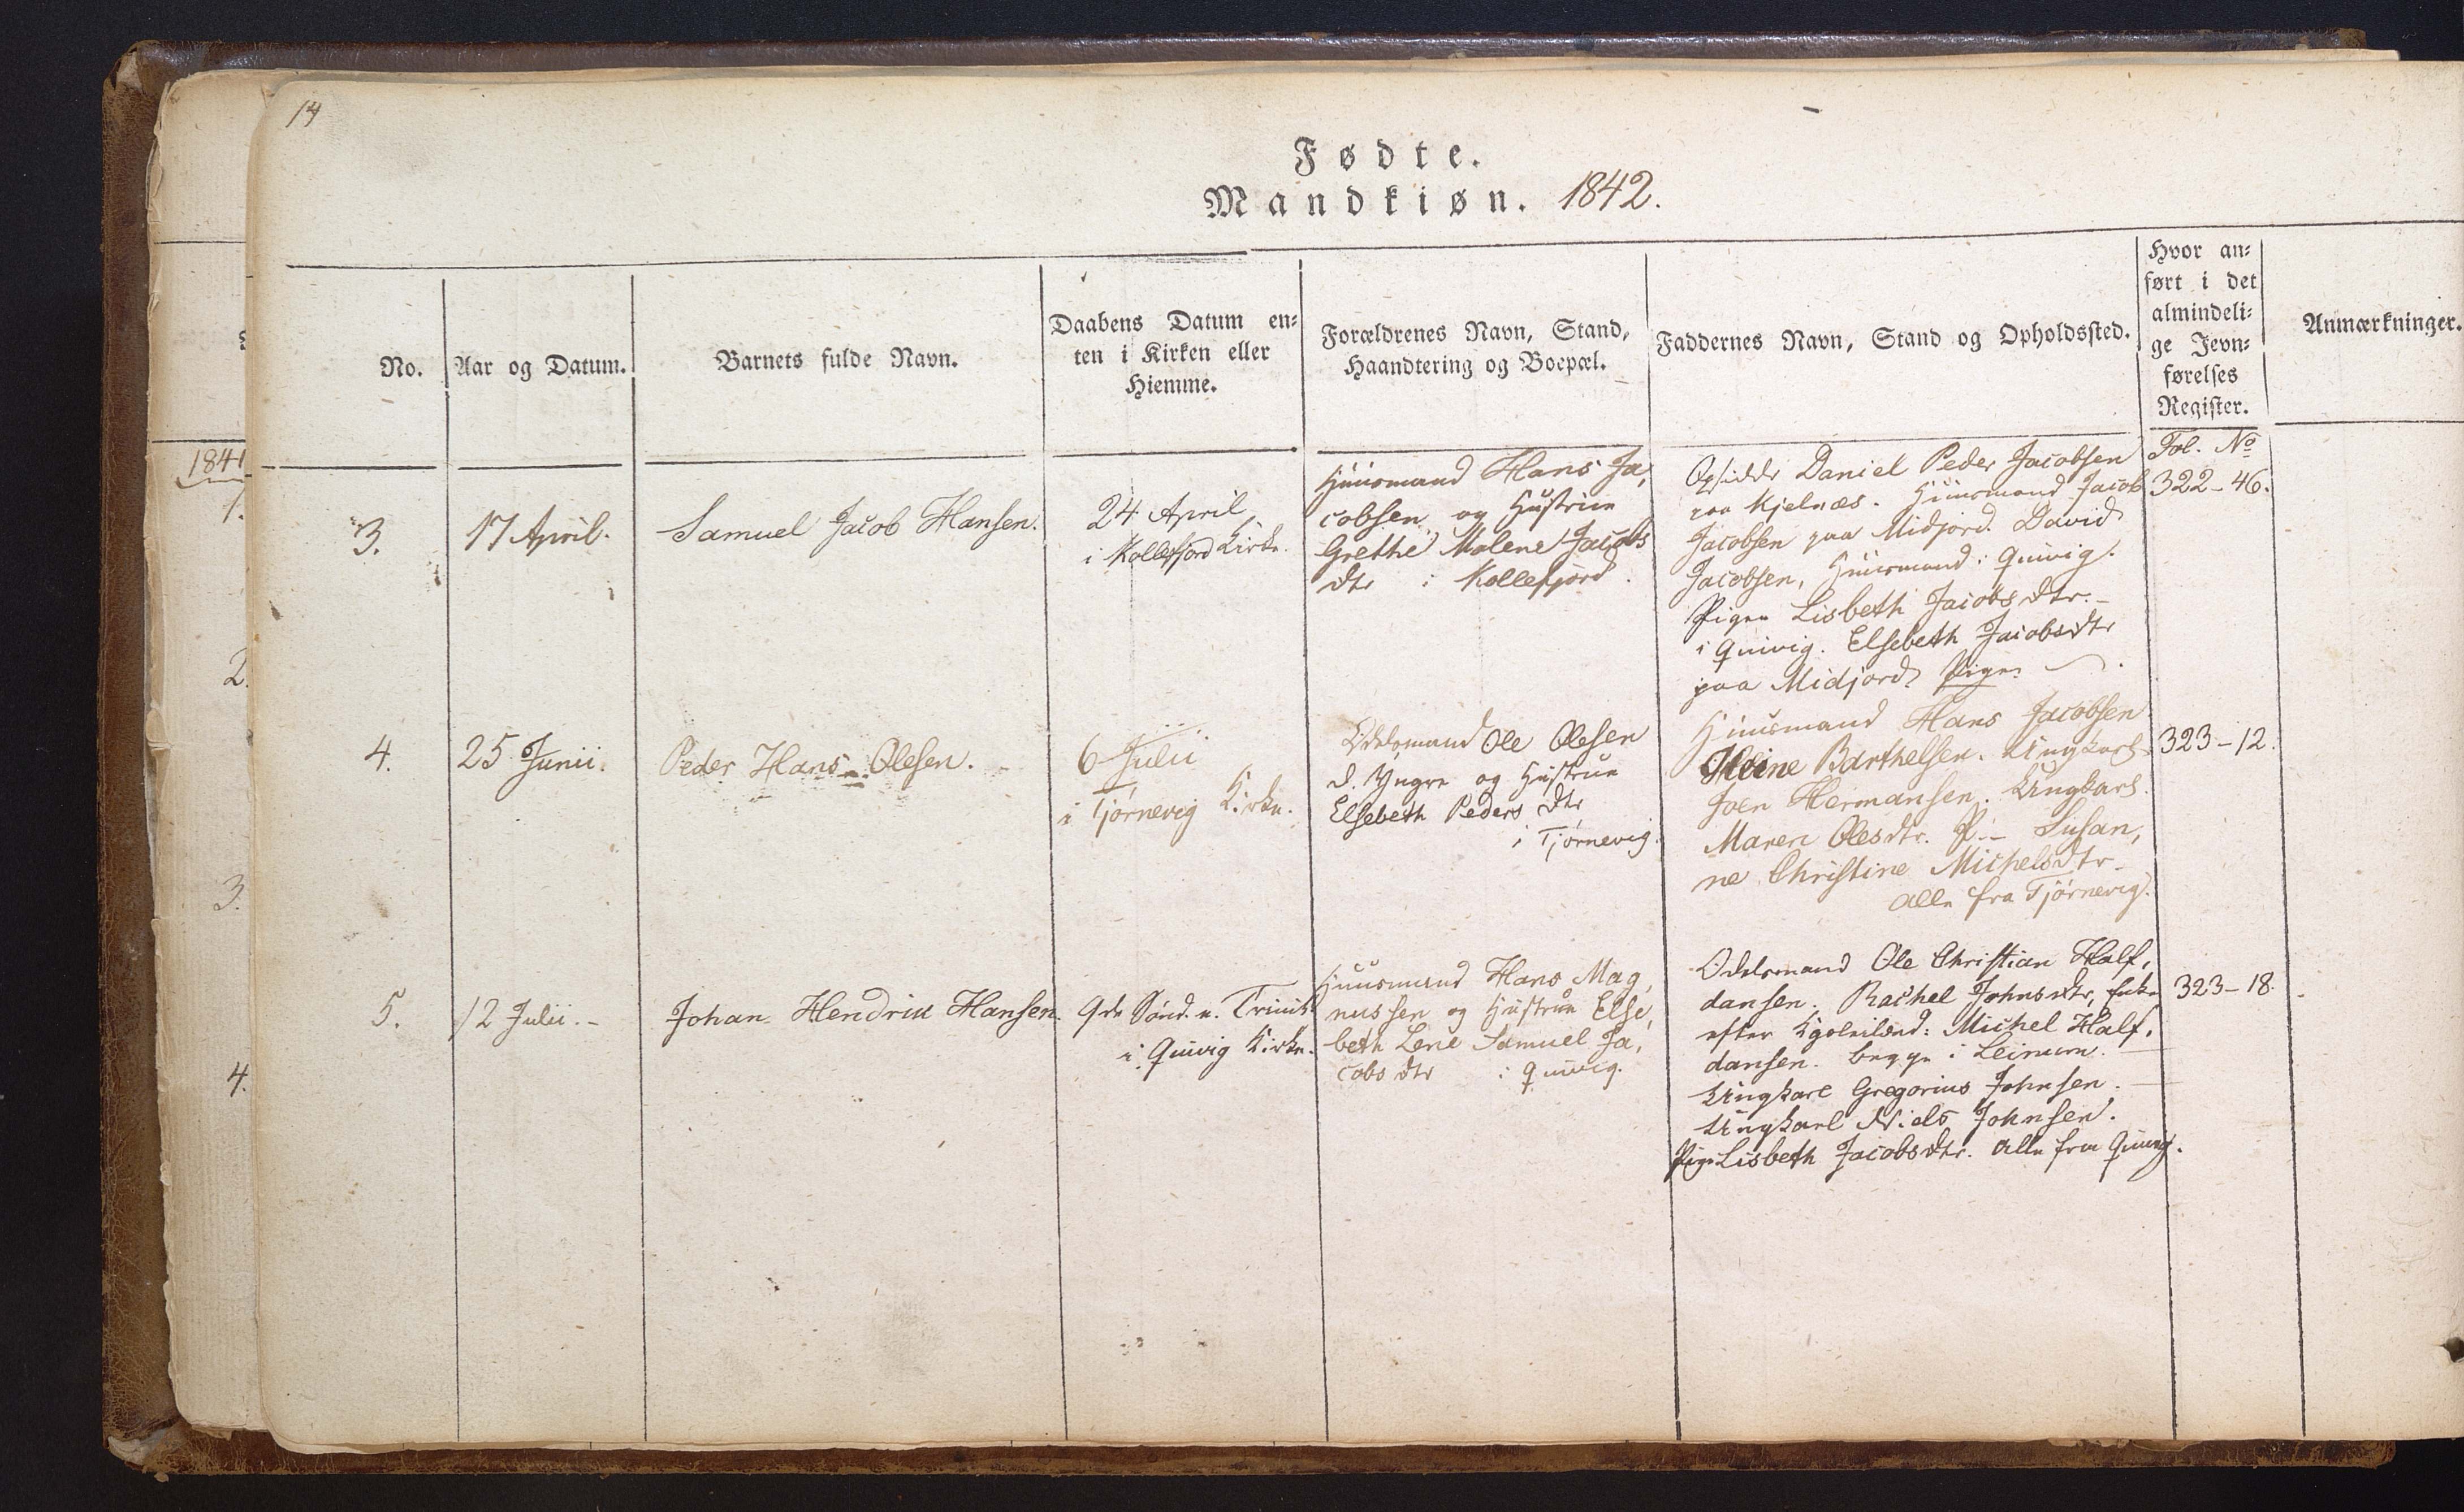 14
Fødte.
Mandkiøn. 1842.
No.
Aar og Datum.
Barnets fulde Navn.
Daabens Datum en=
ten i Kirken eller
Hiemme.
Forældrenes Navn, Stand,
Haandtering og Boepæl.
Faddernes Navn, Stand og Opholdssted.
Hvor an=
ført i det
almindeli=
ge Jevn=
førelses
Register.
Anmærkninger.
1841
1.
2.
3.
4.
3.
17 April.
Samuel Jacob Hansen.
24 April
i Kollefjord Kirke.
Huusmand Hans Ja,
cobsen og Hustrue
Grethe Malene Jacobs
dtr i Kollefjord.
Opsidder Daniel Peder Jacobsen
paa Kjelnæs. Huusmand Jacob
Jacobsen paa Midjord. David
Jacobsen, Huusmand i Quivig.
Pigen Lisbeth Jacobsdtr. –
i Quivig. Elsebeth Jacobsdtr
paa Midjord Pige
Fol. No
322 – 46.
4.
25 Junii.
Peder Hans Olesen.
6 Julii
i Tjørnevig Kirke.
Odelsmand Ole Olesen
d. Yngre og Hustrue
Elsebeth Peders dtr
i Tjørnevig.
Huusmand Hans Jacobsen
Heine Barthelsen. Ungkarl
Joen Hermansen. Ungkarl.
Maren Olesdtr. P. – Susan,
ne Christine Michelsdtr –
alle fra Tjørnevig.
323 – 12.
5.
12 Julii. –
Johan Hendrik Hansen.
9de Sønd. e. Trinit
i Quivig Kirke.
Huusmand Hans Mag,
nussen og Hustrue Else,
beth Lene Samuel Ja,
cobs dtr i Quivig.
Odelsmand Ole Christian Half,
dansen. Rachel Johnsdtr, Enke
efter Michel Half,
dansen. begge i Leinum. –
Ungkarl Gregorius Johnsen. –
Ungkarl Niels Johnsen.
Pige Lisbeth Jacobsdtr. alle fra Quivig.
323 – 18.